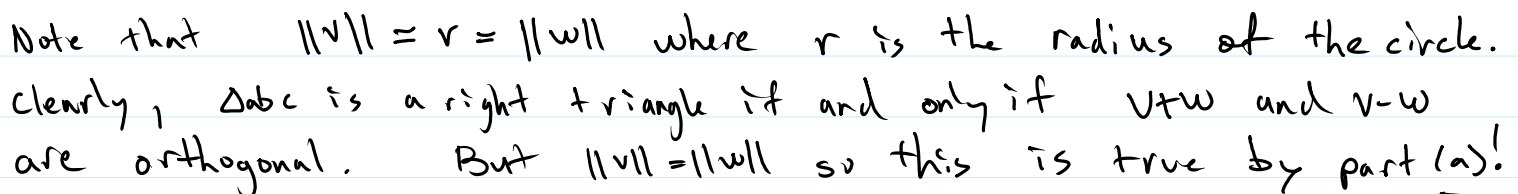 Note that ||v|| = r = ||w|| where r is the radius of the circle.
Clearly, Δabc is a right triangle if and only if v+w and v-w
are orthogonal. But ||v|| = ||w|| so this is true by part (a)!